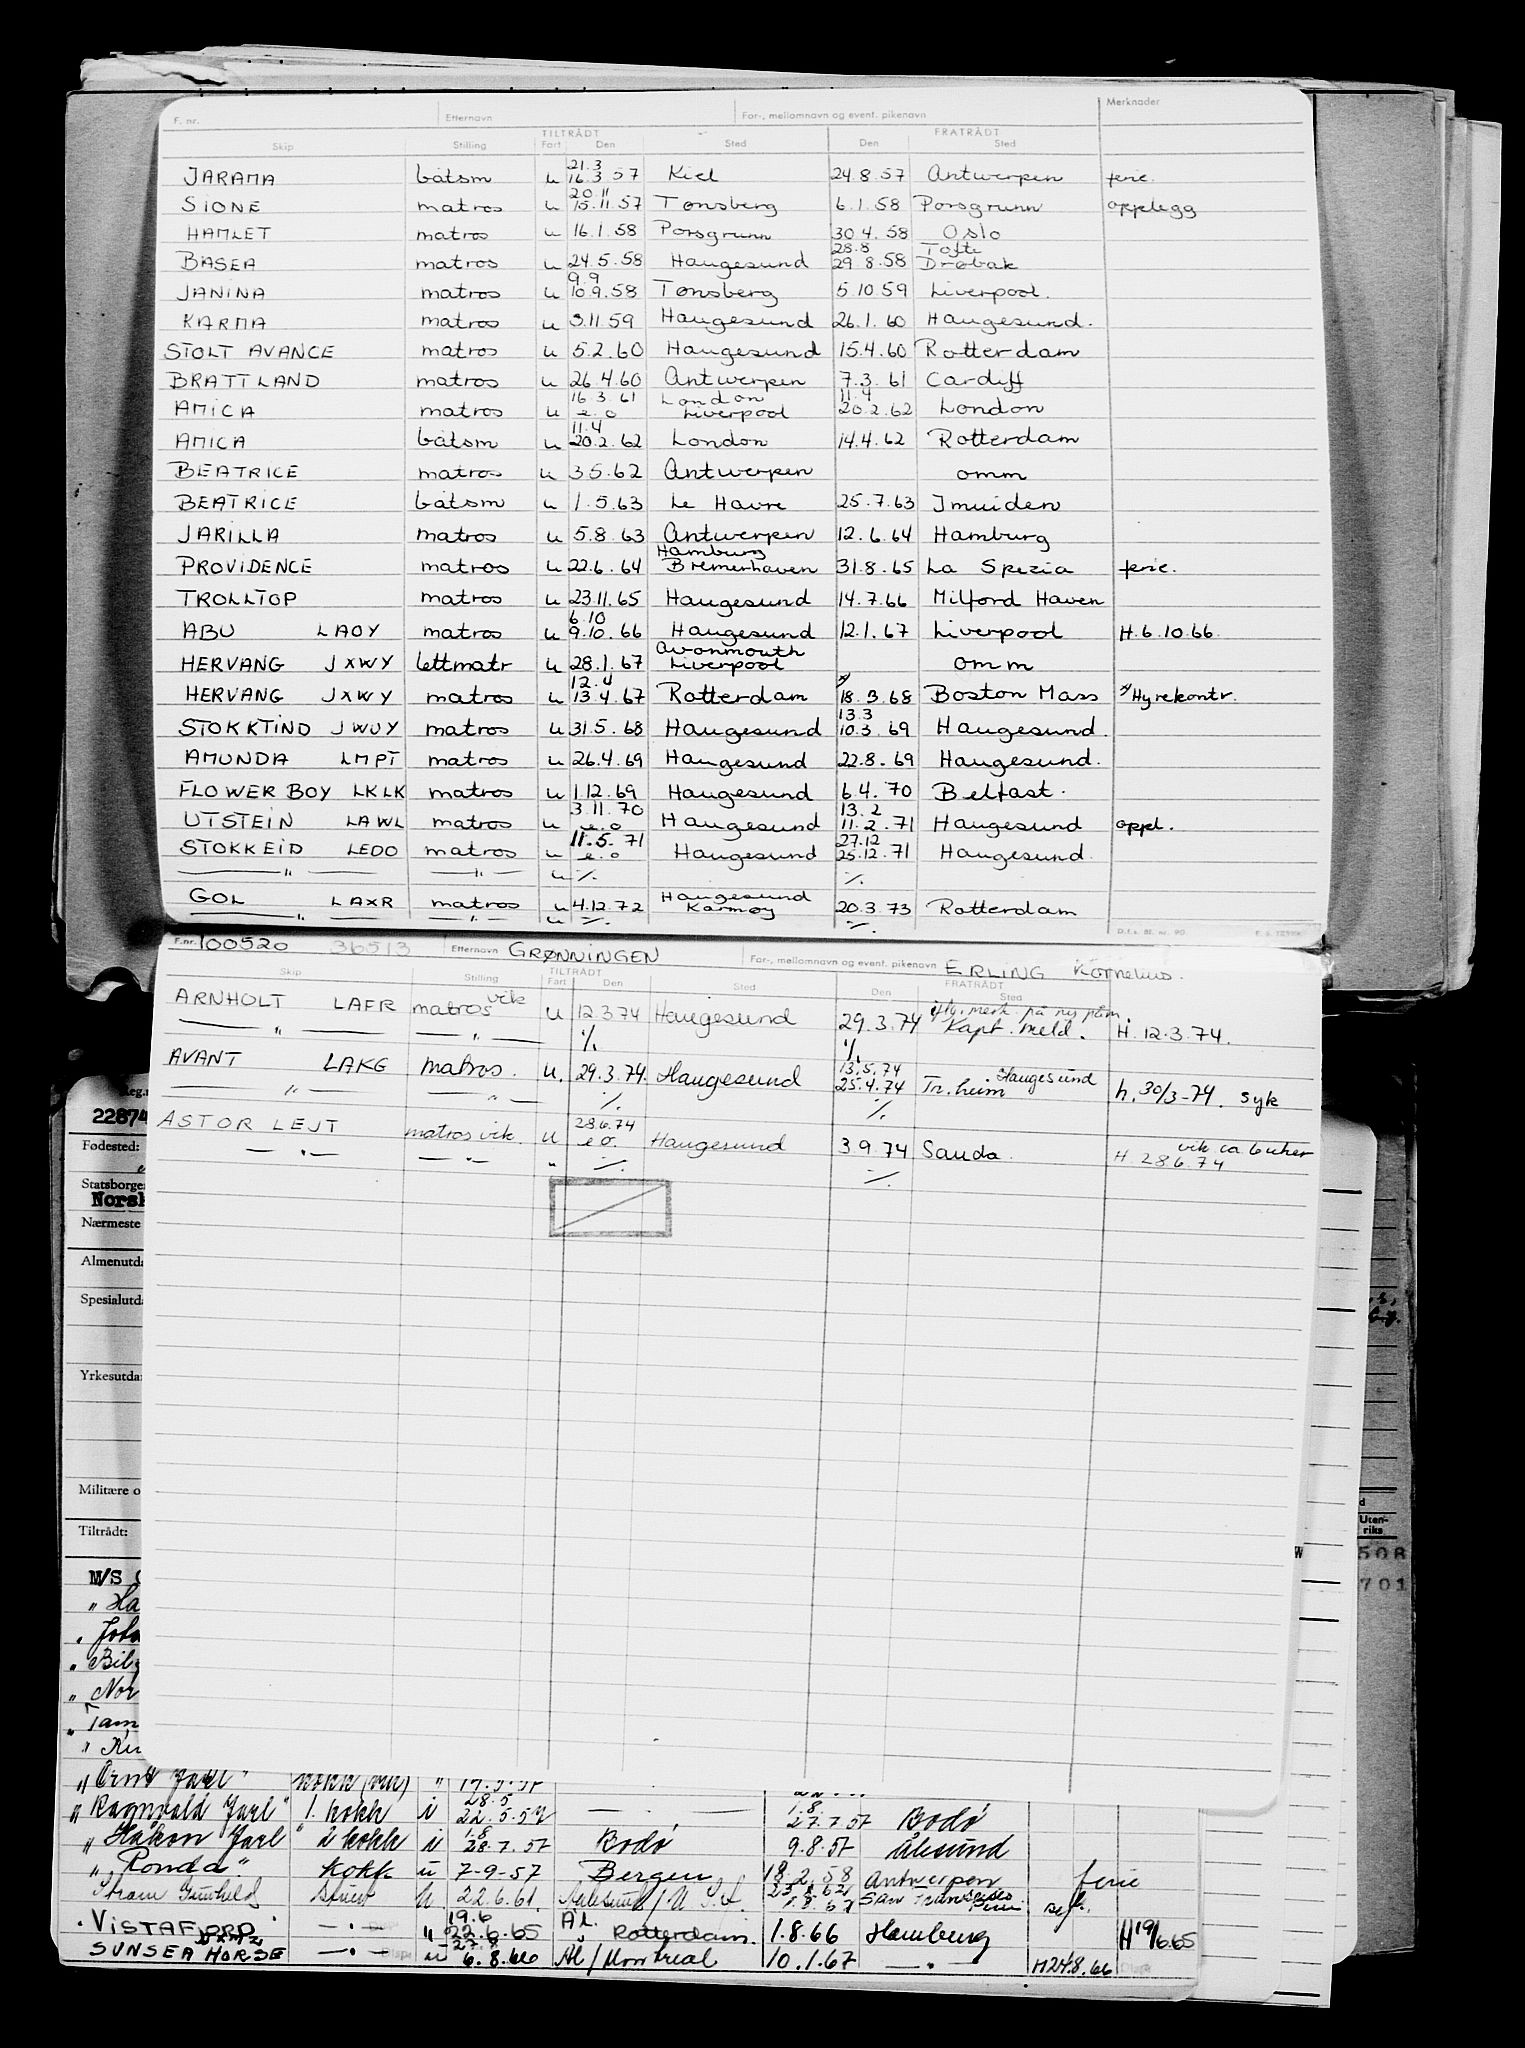 F. nr. Etternavn For-, mellomnavn og event. pikenavn Merknader
TILTRÅDT FRATRÅDT
Skip Stilling Fart Den Sted Den Sted
21.3
JARAMA båtsm u 16.3.57 Kiel 24.8.57 Antwerpen ferie.
20.11
SIONE matros u 15.11.57 Tønsberg 6.1.58 Porsgrunn opplegg
HAMLET matros u 16.1.58 Porsgrunn 30.4.58 Oslo
28.8 Tofte
BASEA matros u 24.5.58 Haugesund 29.8.58 Drøbak
9.9
JANINA matros u 10.9.58 Tønsberg 5.10.59 Liverpool.
KARMA matros u 3.11.59 Haugesund 26.1.60 Haugesund.
STOLT AVANCE matros u 5.2.60 Haugesund 15.4.60 Rotterdam
BRATTLAND matros u 26.4.60 Antwerpen 7.3.61 Cardiff
16.3.61 London 11.4
AMICA matros u e.o Liverpool 20.2.62 London
11.4
AMICA båtsm u 20.2.62 London 14.4.62 Rotterdam
BEATRICE matros u 3.5.62 Antwerpen omm
BEATRICE båtsm u 1.5.63 Le Havre 25.7.63 Imuiden
JARILLA matros u 5.8.63 Antwerpen 12.6.64 Hamburg
Hamburg
PROVIDENCE matros u 22.6.64 Bremerhaven 31.8.65 La Spezia ferie.
TROLLTOP matros u 23.11.65 Haugesund 14.7.66 Milford Haven
6.10
ABU LAOY matros u 9.10.66 Haugesund 12.1.67 Liverpool H.6.10.66.
Avonmouth
HERVANG JXWY lettmatr u 28.1.67 Liverpool omm
12.4
HERVANG JXWY matros u 13.4.67 Rotterdam 18.3.68 Boston Mass Hyrekontr.
13.3
STOKKTIND JWUY matros u 31.5.68 Haugesund 10.3.69 Haugesund.
AMUNDA LMPT matros u 26.4.69 Haugesund 22.8.69 Haugesund.
FLOWER BOY LKLK matros u 1.12.69 Haugesund 6.4.70 Belfast.
3.11.70 13.2
UTSTEIN LAWL matros u e.o Haugesund 11.2.71 Haugesund oppl.
11.5.71 27.12
STOKKEID LEDO matros u e.o Haugesund 25.12.71 Haugesund.
— " — — " — u ./. ./.
Haugesund
GOL LAXR matros u 4.12.72 Karmøy 20.3.73 Rotterdam
— " — — " — u ./. ./.
D.f.s. Bl. nr. 90.
F.nr. 100520 36513 Etternavn GRØNNINGEN For-, mellomnavn og event. pikenavn ERLING Kornelius.
TILTRÅDT FRATRÅDT
Skip Stilling Fart Den Sted Den Sted
vik iflg. merk. på
ARNHOLT LAFR matros u 12.3.74 Haugesund 29.3.74 Kapt. meld. H. 12.3.74.
— " — — " — ./. ./.
13.5.74 Haugesund
AVANT LAKG matros. u. 29.3.74. Haugesund 25.4.74 Tr.heim h. 30/3-74. syk
— " — — " — ./. ./.
28.6.74 vik ca 6 uker
ASTOR LEJT matros vik. u e.o. Haugesund 3.9.74 Sauda. H 28.6.74
— " — — " — " ./. ./.
22874
Fødested:
Statsborger
Norsk
Nærmeste
Almenutda
Spesialutda
Yrkesutda
Militære o
Tiltrådt:
Uten-
riks
508
701
M/S
" Ha
Joha
" Nor
" Ørnt Jarl" kokk (vik) "
28.5 1.8.
" Ragnvald Jarl" 1. kokk i 22.5.57 — — 27.7.57 Bodø
1.8
" Håkon Jarl" 2 kokk i 28.7.57 Bodø 9.8.57 Ålesund
" Ronda" kokk u 7-9-57 Bergen 18.2.58 Antwerpen ferie
22.6.61.
19.6 Ål.
. VISTAFJORD — " — " 22.6.65 " Rotterdam. 1.8.66 Hamburg H 19/6.65
SUNSEA HORSE — " — u 6.8.66 Ål/Montreal 10.1.67 — " — H24.8.66